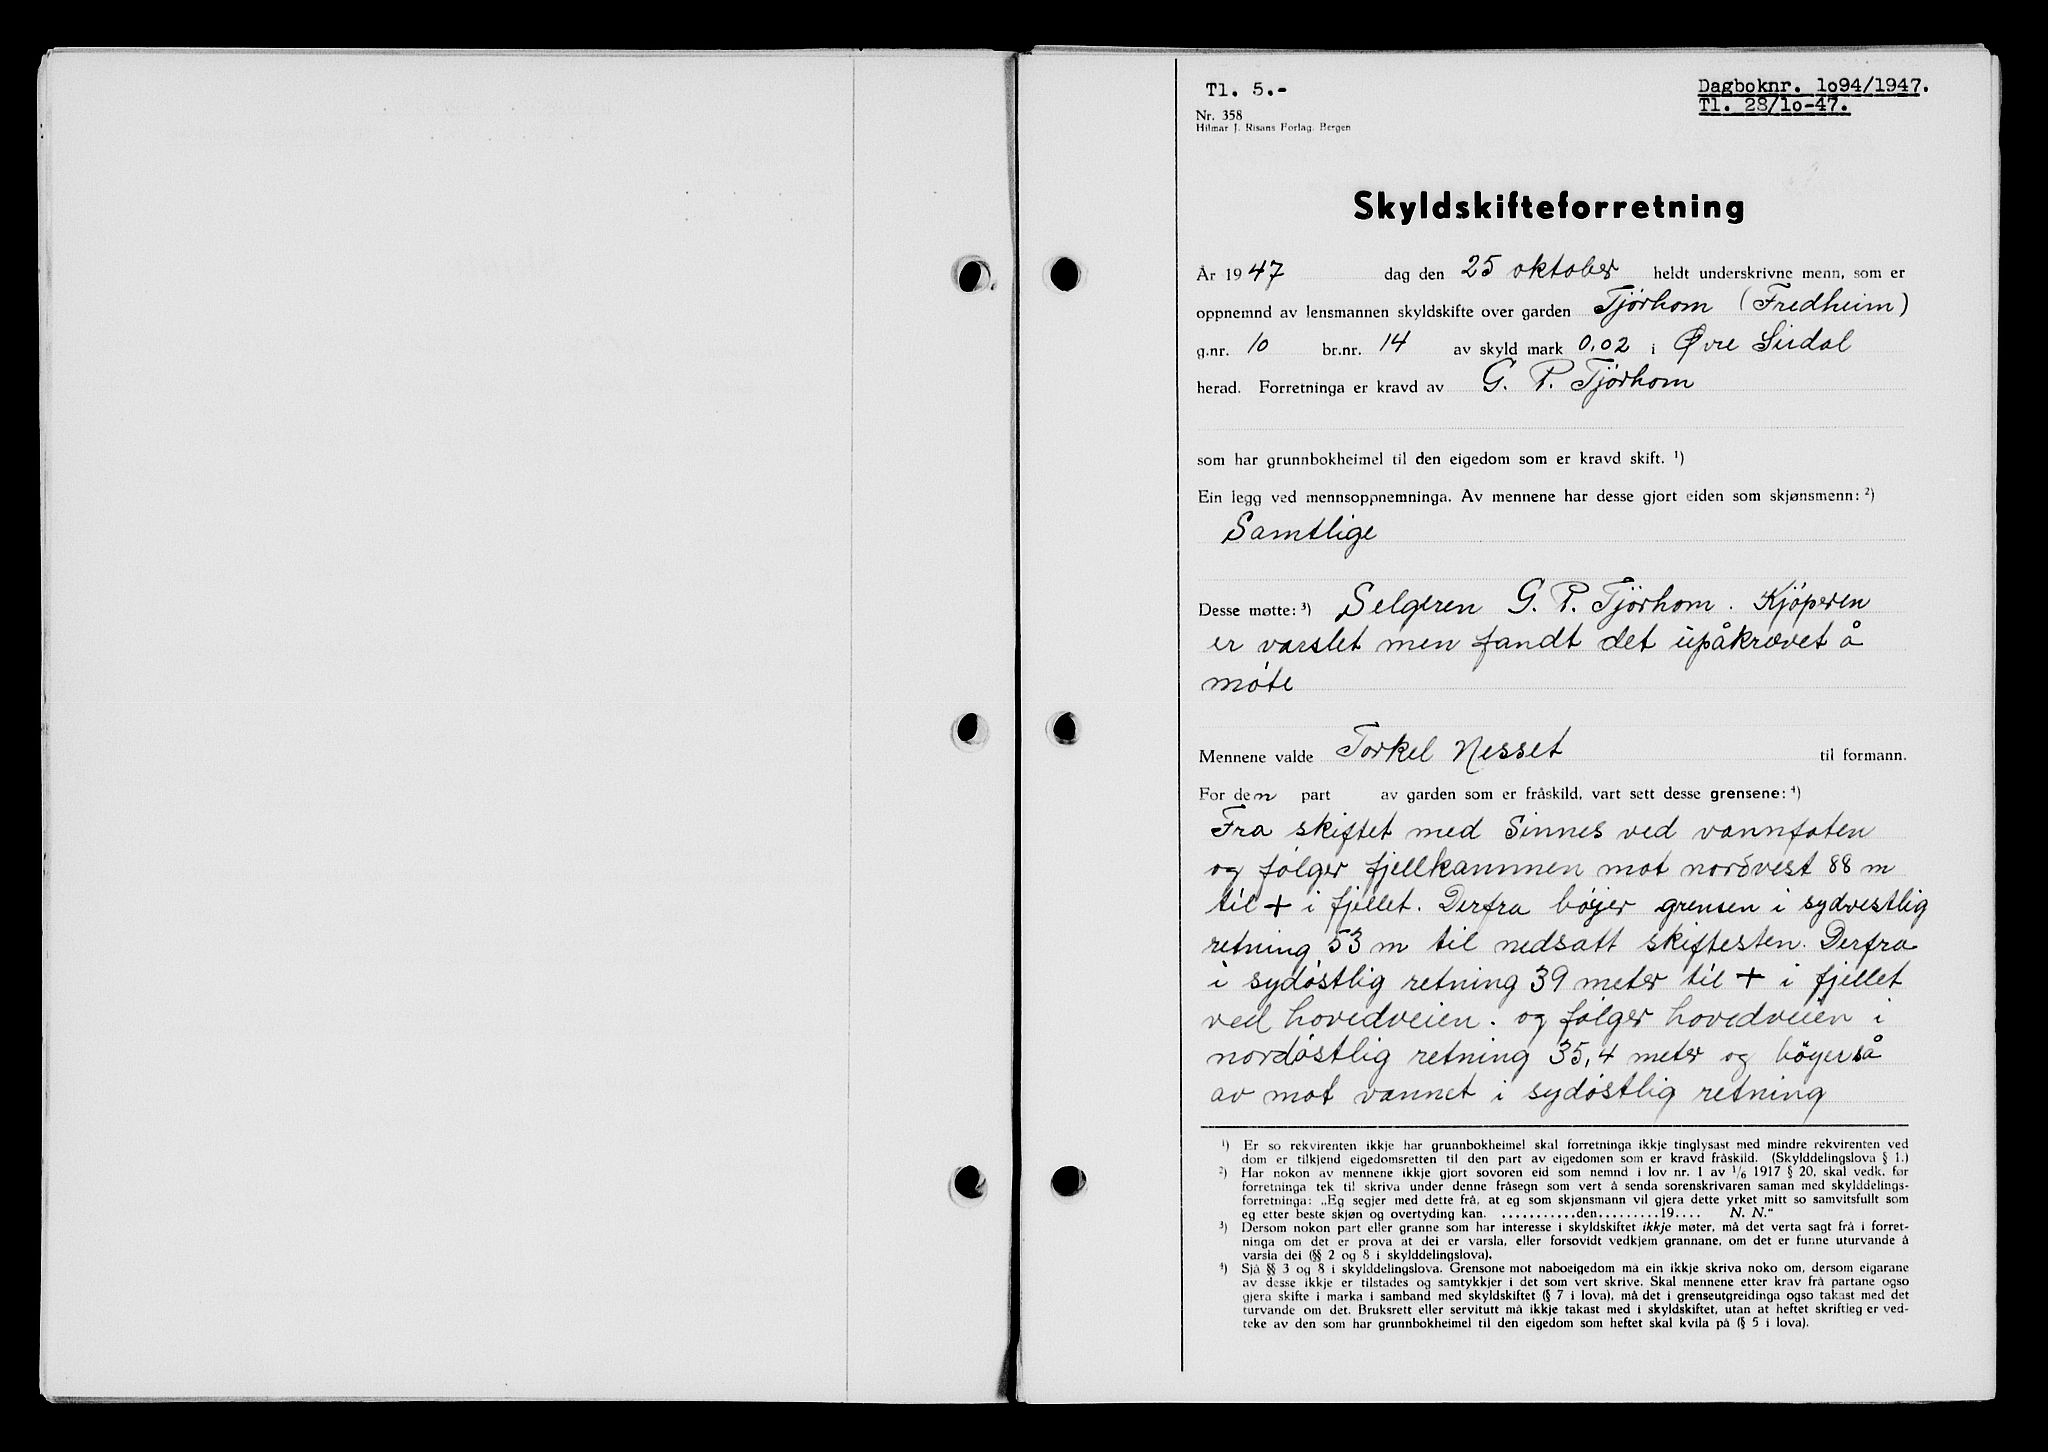 Tl. 5.-
Dagboknr. 1o94/1947.
Tl. 28/1o-47.
Nr. 358
Hilmar J. Risans Forlag, Bergen
Skyldskifteforretning
År 1947 dag den 25 oktober heldt underskrivne menn, som er
oppnemnd av lensmannen skyldskifte over garden Tjørhom (Fredheim)
g.nr. 10 br.nr. 14 av skyld mark 0,02 i Øvre Sirdal
herad. Forretninga er kravd av G. P. Tjørhom
som har grunnbokheimel til den eigedom som er kravd skift. ¹)
Ein legg ved mennsoppnemninga. Av mennene har desse gjort eiden som skjønsmenn: ²)
Samtlige
Desse møtte: ³) Selgeren G. P. Tjørhom. Kjöperen
er varslet men fandt det upåkrævet å
møte
Mennene valde Torkel Nesset til formann.
For den part av garden som er fråskild, vart sett desse grensene: ⁴)
Fra skiftet med Sinnes ved vannfaten
og følger fjellkammen mot nordvest 88 m
til + i fjellet. Derfra bøyer grensen i sydvestlig
retning 53 m til nedsatt skiftesten. Derfra
i sydøstlig retning 39 meter til + i fjellet
ved hovedveien. og følger hovedveien i
nordøstlig retning 35,4 meter og böyer så
av mot vannet i sydøstlig retning
¹) Er so rekvirenten ikkje har grunnbokheimel skal forretninga ikkje tinglysast med mindre rekvirenten ved
dom er tilkjend eigedomsretten til den part av eigedomen som er kravd fråskild. (Skylddelingslova § 1.)
²) Har nokon av mennene ikkje gjort sovoren eid som nemnd i lov nr. 1 av 1/6 1917 § 20, skal vedk. før
forretninga tek til skriva under denne fråsegn som vert å senda sorenskrivaren saman med skylddelings-
forretninga: „Eg segjer med dette frå, at eg som skjønsmann vil gjera dette yrket mitt so samvitsfullt som
eg etter beste skjøn og overtyding kan. ...........den.........19.... N. N."
³) Dersom nokon part eller granne som har interesse i skyldskiftet ikkje møter, må det verta sagt frå i forret-
ninga om det er prova at dei er varsla, eller forsovidt vedkjem grannane, om det er funne uturvande å
varsla dei (§§ 2 og 8 i skylddelingslova).
⁴) Sjå §§ 3 og 8 i skylddelingslova. Grensone mot naboeigedom må ein ikkje skriva noko om, dersom eigarane
av desse ikkje er tilstades og samtykkjer i det som vert skrive. Skal mennene etter krav frå partane ogso
gjera skifte i marka i samband med skyldskiftet (§ 7 i lova), må det i grenseutgreidinga ogso takast med det
turvande om det. Bruksrett eller servitutt må ikkje takast med i skyldskiftet, utan at heftet skriftleg er ved-
teke av den som har grunnbokheimel til den eigedom som heftet skal kvila på (§ 5 i lova).